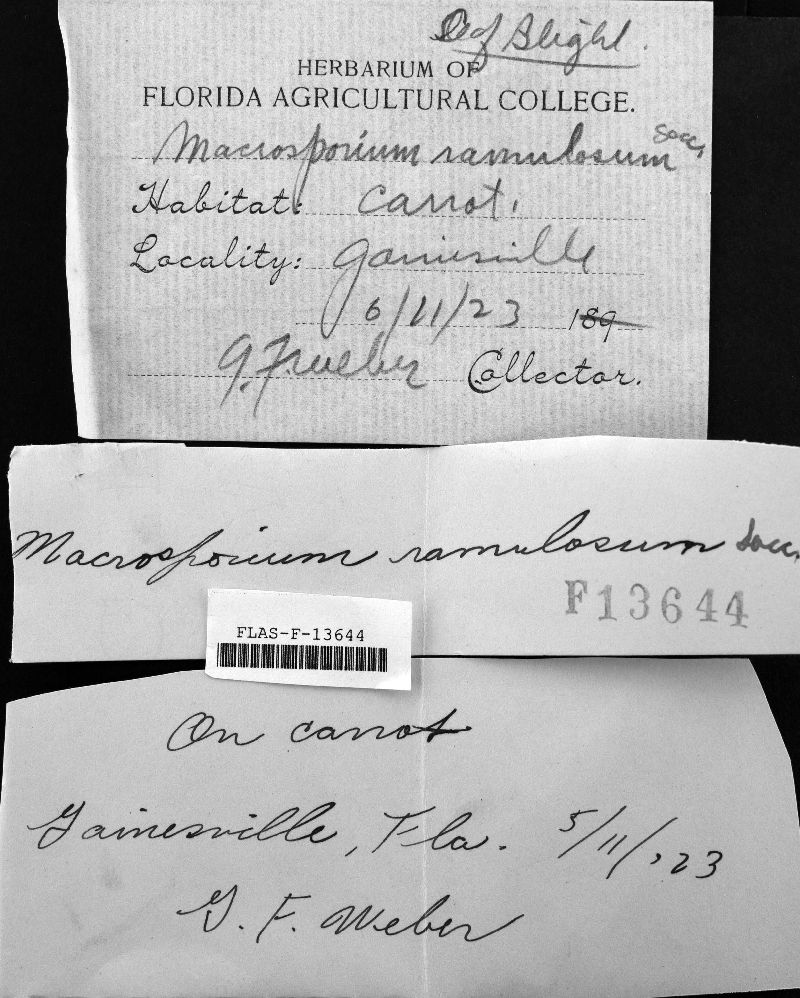 Leaf Blight.
HERBARIUM OF
FLORIDA AGRICULTURAL COLLEGE.
Macrosporium ramulosum Sacc.
Habitat: Carrot.
Locality: Gainesville
6/11/23 189
G. F. Weber Collector.
Macrosporium ramulosum Sacc.
F13644
FLAS-F-13644
On carrot
Gainesville, Fla. 5/11/'23
G. F. Weber